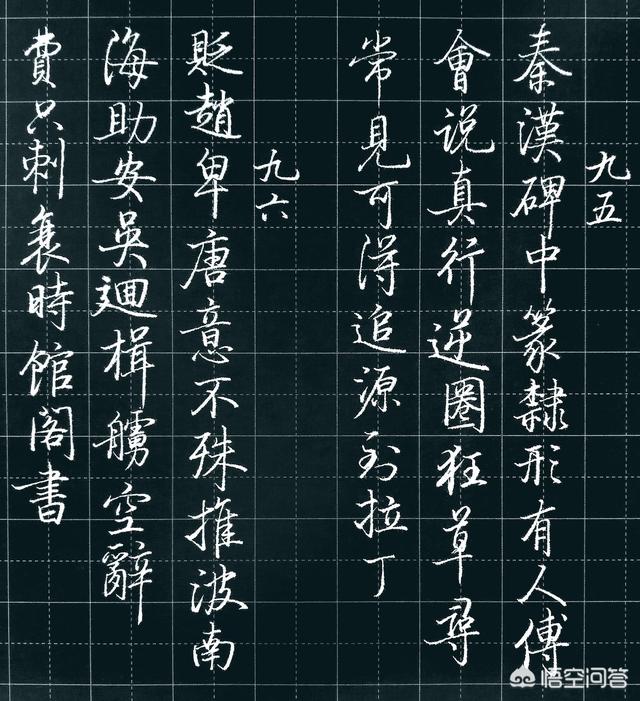 九五
秦漢碑中篆隸形有人傅
會说真行逆圈狂草尋
常見可得追源到拉丁
九六
貶趙卑唐意不殊推波南
海助安吳廻楫艣空辭
費只刺衰時館閣書
悟空问答